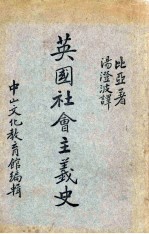 比亞著
湯澄波譯
英國社會主義史
中山文化教育館編輯